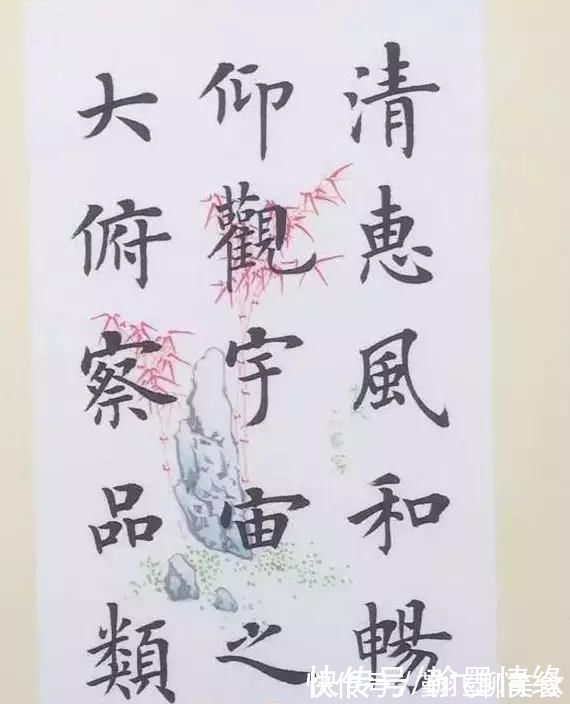 清惠風和暢
仰觀宇宙之
大俯察品類
快传号/翰墨情缘